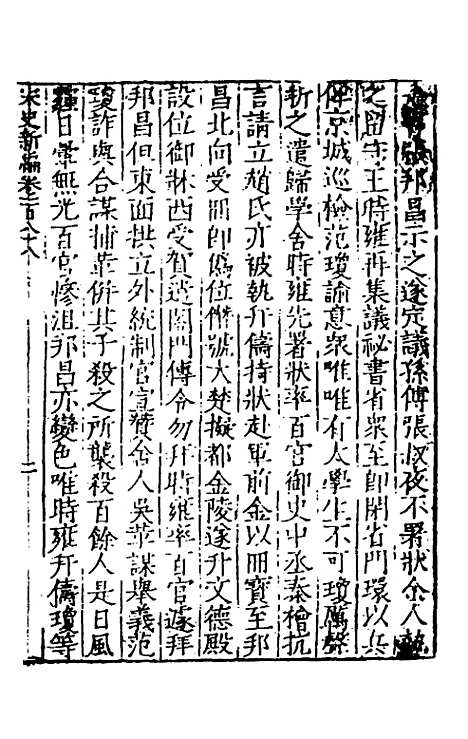 張邦昌示之遂定議孫傅張叔夜不署狀金人執
之留守王時雍再集議祕書省衆至即閉省門環以兵
俾京城巡檢范瓊諭意衆唯唯有大學生不可瓊厲聲
折之遣歸學舍時雍先署狀率百官御史中丞秦檜抗
言請立趙氏亦被執幵儔持狀赴軍前金以冊寶至邦
昌北向受冊即僞位僭號大楚擬都金陵遂升文德殿
設位御牀西受賀遣閤門傳令勿拜時雍率百官遽拜
邦昌但東面拱立外統制官宣贊舍人吳革謀舉義范
瓊詐與合謀捕革併其子殺之所襲殺百餘人是日風
霾日暈無光百官慘沮邦昌亦變色唯時雍幵儔瓊等
宋史新編卷一百八十八 二